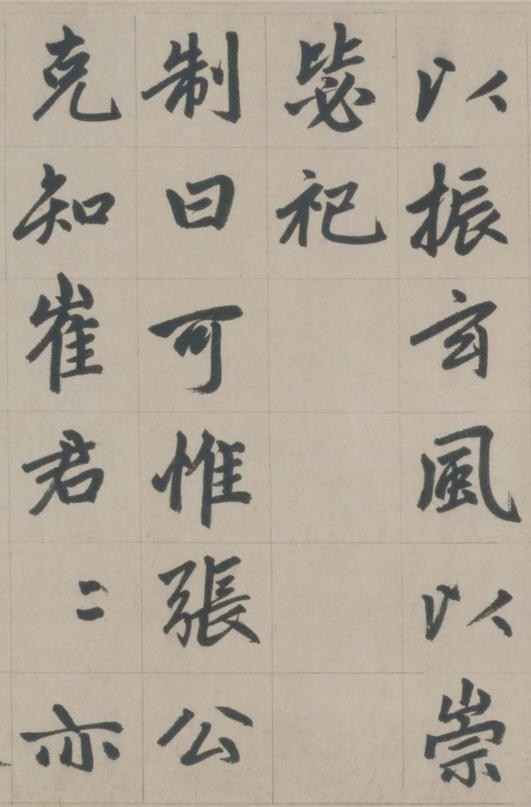 以振玄風以崇
毖祀
制曰可惟張公
克知崔君〻亦